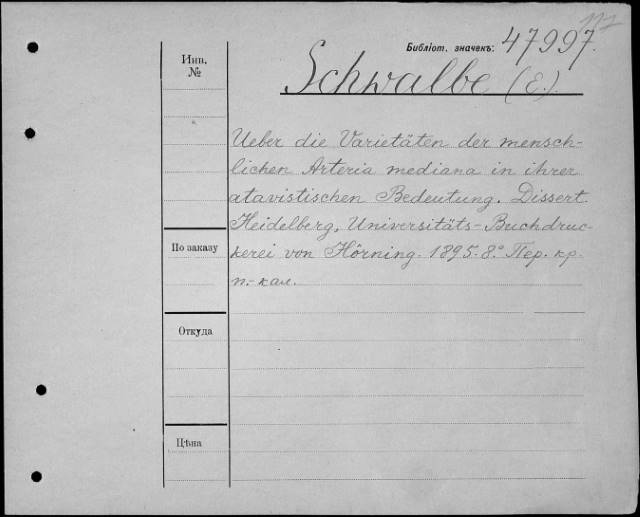 Библіот. значекъ: 47997.
Инв.
№
Schwalbe (E.)
Ueber die Varietäten der mensch-
lichen Arteria mediana in ihrer
atavistischen Bedeutung. Dissert.
Heidelberg, Universitäts-Buchdruc-
kerei von Hörning. 1895. 8.° Пер. кр.
п.-кал.
По заказу
Откуда
Цѣна